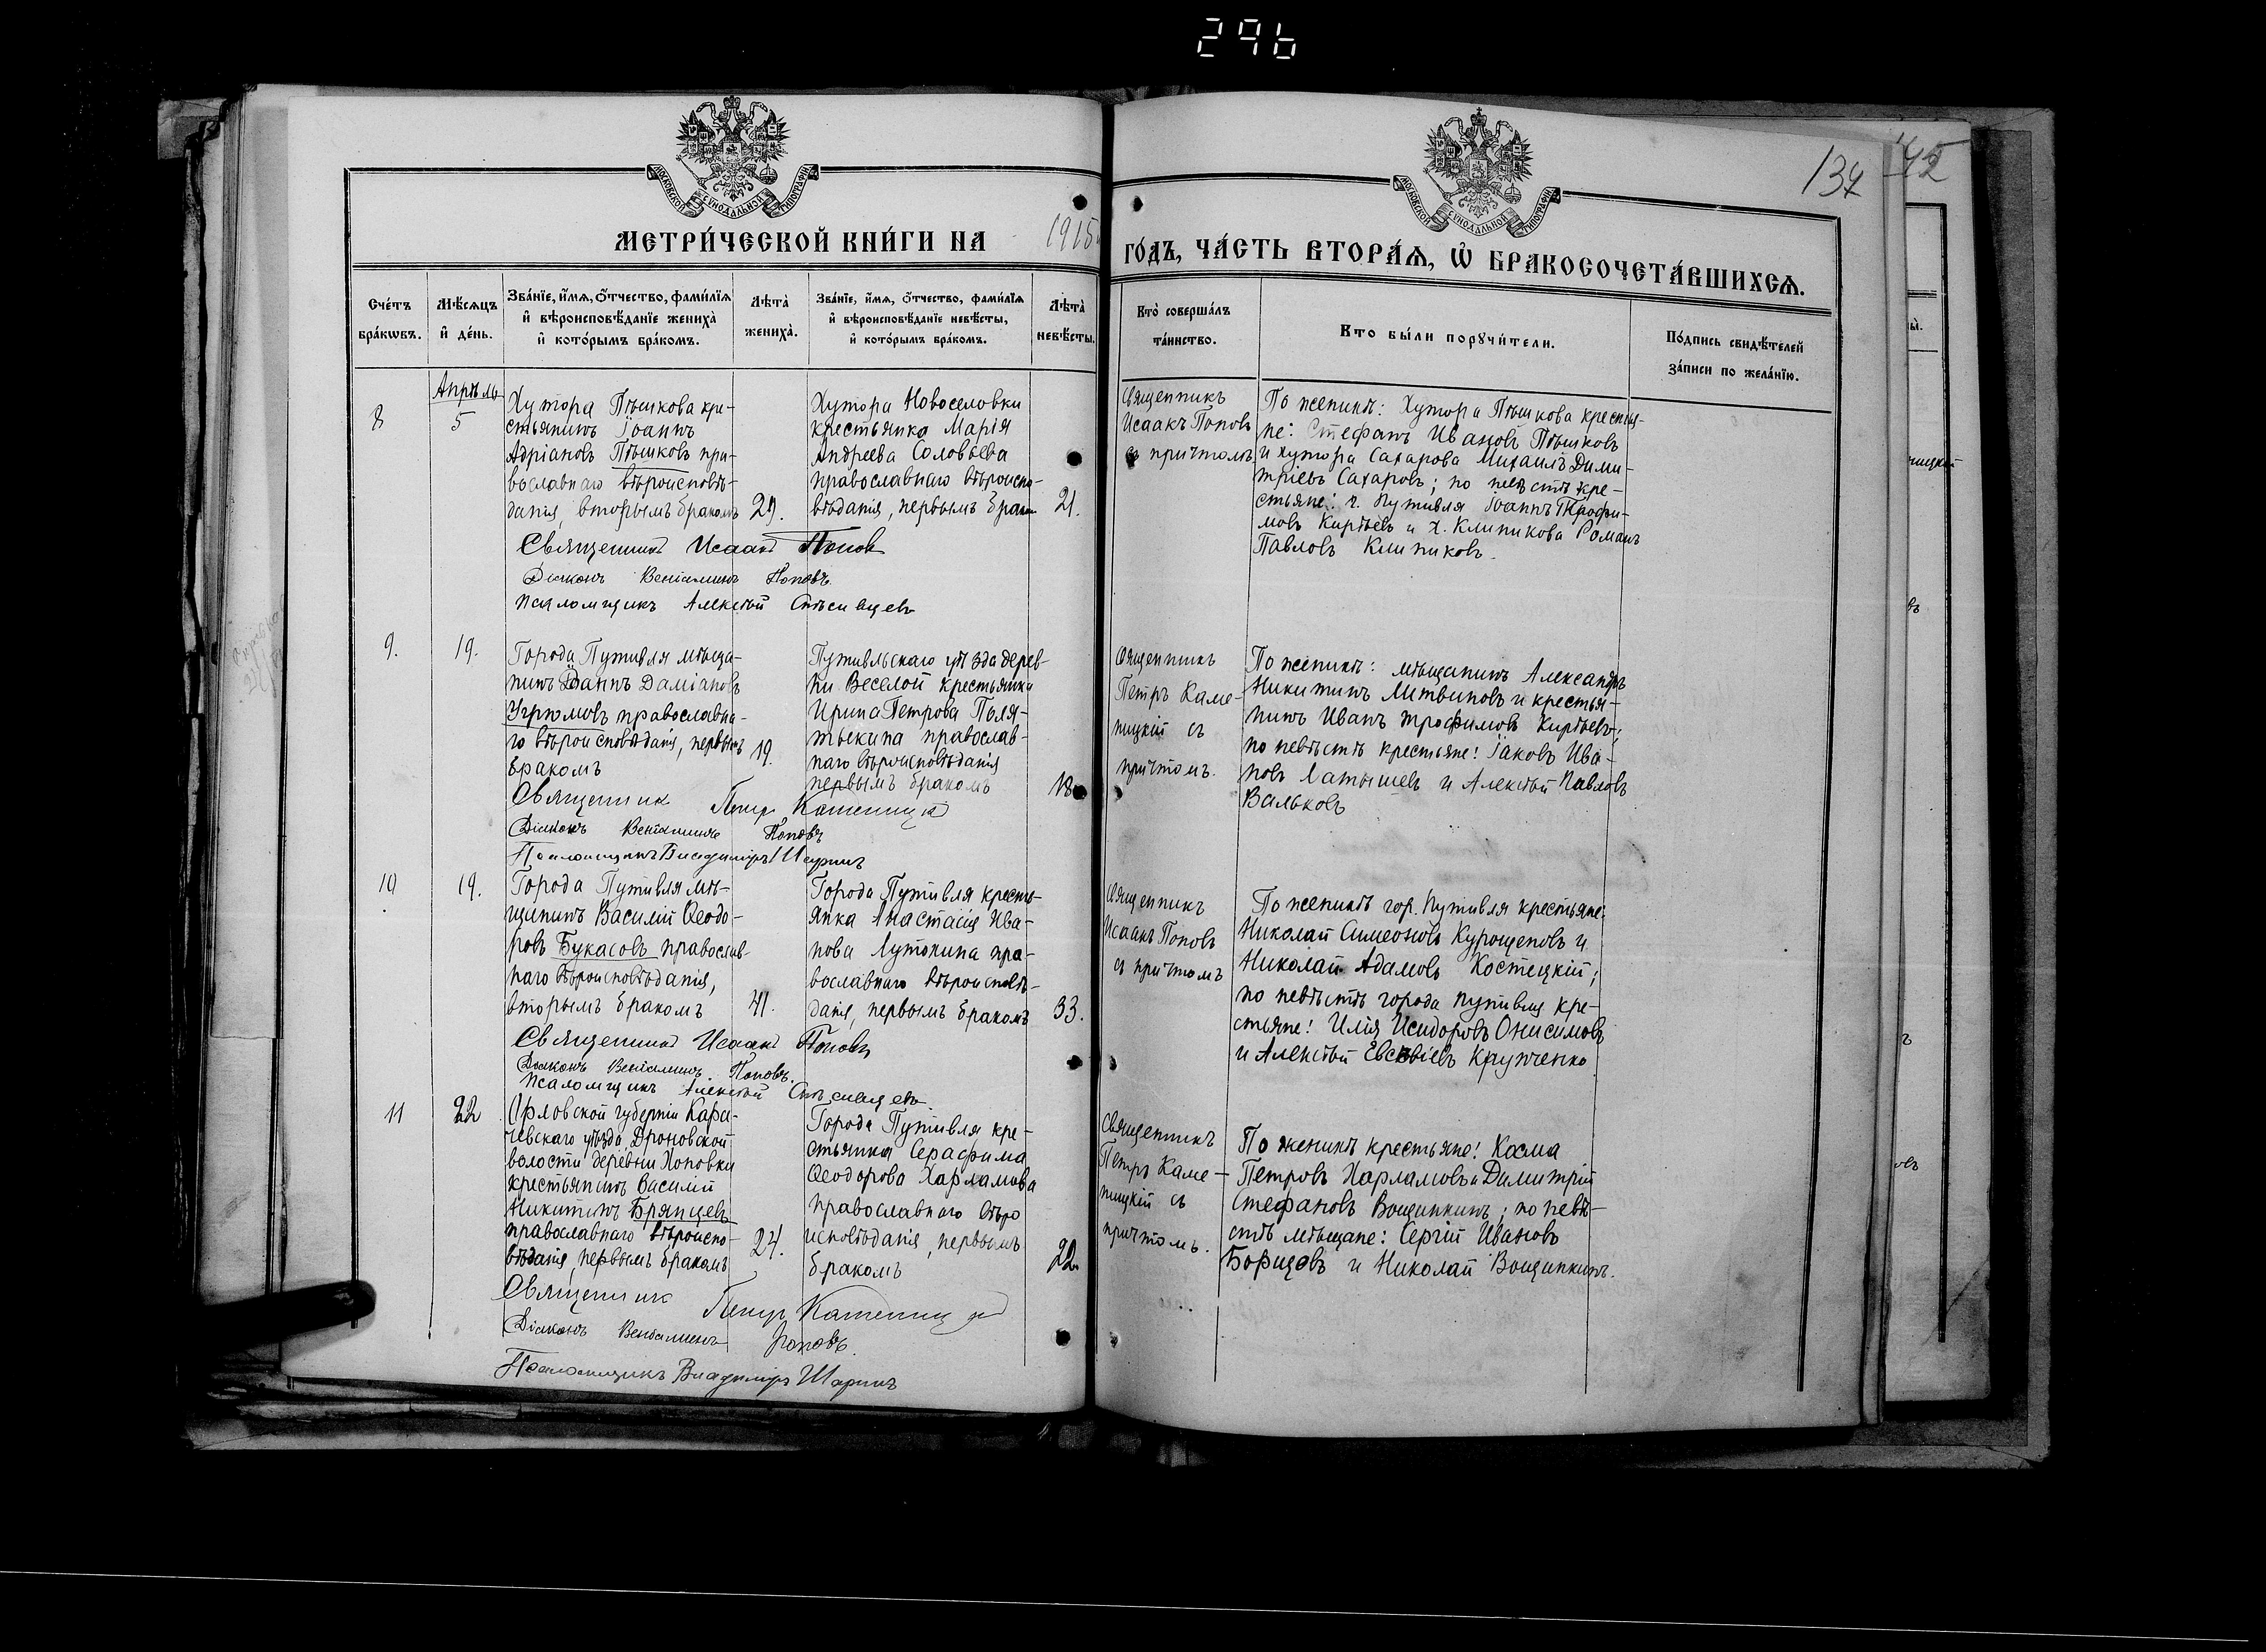 296
134
42
МОСКОВСКОЙ СѴНОДАЛЬНОЙ ТИПОГРАФІИ
МОСКОВСКОЙ СѴНОДАЛЬНОЙ ТИПОГРАФІИ
МЕТРИ́ЧЕСКОЙ КНИ́ГИ НА 1915
ГО́ДЪ, ЧА́СТЬ ВТОРА́Ѧ, Ѽ БРАКОСОЧЕТА́ВШИХСѦ.
Сче́тъ
бра́кѡвъ.
Мѣ́сѧцъ
и҆ де́нь.
Зва́нїе, и҆́мѧ, ѻ҆́тчество, фами́лїѧ
и҆ вѣроисповѣ́данїе жениха̀
и҆ кото́рымъ бра́комъ.
Лѣ̑та̀
жениха̀.
Зва́нїе, и҆́мѧ, ѻ҆́тчество, фами́лїѧ
и҆ вѣроисповѣ́данїе невѣ́сты,
и҆ кото́рымъ бра́комъ.
Лѣ̑та̀
невѣ́сты.
Кто̀ соверша́лъ
та́инство.
Кто бы́ли порꙋчи́тели.
По́дпись свидѣ́телей
за́писи по жела́нїю.
8
Апрѣль
5
Хутора Пѣшкова кре-
стьянинъ Іоаннъ
Адріановъ Пѣшковъ пра-
вославнаго вѣроисповѣ-
данія, вторымъ бракомъ
29.
Хутора Новоселовки
крестьянка Марія
Андреева Соловьева
православнаго вѣроиспо-
вѣданія, первымъ браком
21.
Священникъ
Исаакъ Поповъ
съ причтомъ
По женихѣ: Хутора Пѣшкова крестья-
не: Стефанъ Ивановъ Пѣшковъ
и хутора Сахарова Михаилъ Дими-
тріевъ Сахаровъ; по невѣстѣ кре-
стьяне: г. Путивля Іоаннъ Трофи-
мовъ Кирѣевъ и х. Клипикова Романъ
Павловъ Клипиковъ.
Священникъ Исаакъ Поповъ
Діаконъ Веніаминъ Поповъ.
Псаломщикъ Алексѣй
9.
19.
Города Путивля мѣща-
нинъ Іоаннъ Даміановъ
Угрюмовъ православна-
го вѣроисповѣданія, первымъ
бракомъ
19.
Путивльскаго уѣзда дерев-
ни Веселой крестьянка
Ирина Петрова Поля-
тыкина православ-
наго вѣроисповѣданія
первымъ бракомъ
18
Священникъ
Петръ Каме-
ницкій съ
причтомъ.
По женихѣ: мѣщанинъ Александръ
Никитинъ Литвиновъ и крестья-
нинъ Иванъ Трофимовъ Кирѣевъ;
по невѣстѣ крестьяне: Іаковъ Ива-
новъ Латышевъ и Алексѣй Павловъ
Вальковъ
Священник Петр Каменицкій
Діаконъ Веніаминъ Поповъ
Псаломщикъ Владиміръ Шаринъ
10
19.
Города Путивля мѣ-
щанинъ Василій Ѳеодо-
ровъ Букасовъ православ-
наго вѣроисповѣданія,
вторымъ бракомъ
41.
Города Путивля кресть-
янка Анастасія Ива-
нова Лутонина пра-
вославнаго вѣроисповѣ-
данія, первымъ бракомъ
33.
Священникъ
Исаакъ Поповъ
съ причтомъ
По женихѣ гор. Путивля крестьяне:
Николай Симеоновъ Курощеповъ и
Николай Адамовъ Костецкій;
по невѣстѣ города Путивля кре-
стьяне: Илія Исидоровъ Онисимовъ
и Алексѣй Евсевіевъ Крупченко
Священникъ Исаакъ Поповъ
Діаконъ Веніаминъ Поповъ.
Псаломщикъ Алексѣй
11
22
Орловской губерніи Кара-
чевскаго уѣзда Дроновской
волости деревни Хоповки
крестьянинъ Василій
Никитинъ Брянцевъ
православнаго вѣроиспо-
вѣданія, первымъ бракомъ
24.
Города Путивля кре-
стьянка Серафима
Ѳеодорова Харламова
православнаго вѣро
исповѣданія, первымъ
бракомъ
22.
Священникъ
Петръ Каме-
ницкій съ
причтомъ.
По женихѣ крестьяне: Косма
Петровъ Харламовъ и Димитрій
Стефановъ Вощинкинъ; по невѣ-
стѣ мѣщане: Сергій Ивановъ
Борицовъ и Николай Вощинкинъ.
Священник Петр Каменицкій
Діаконъ Веніаминъ Поповъ.
Псаломщикъ Владиміръ Шаринъ